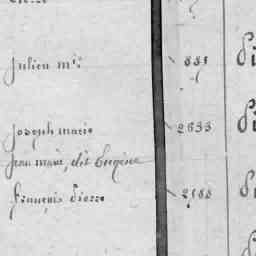 Julien m.ie 881
Joseph marie 2633
Jean marie, dit Eugène
François Pierre 2188